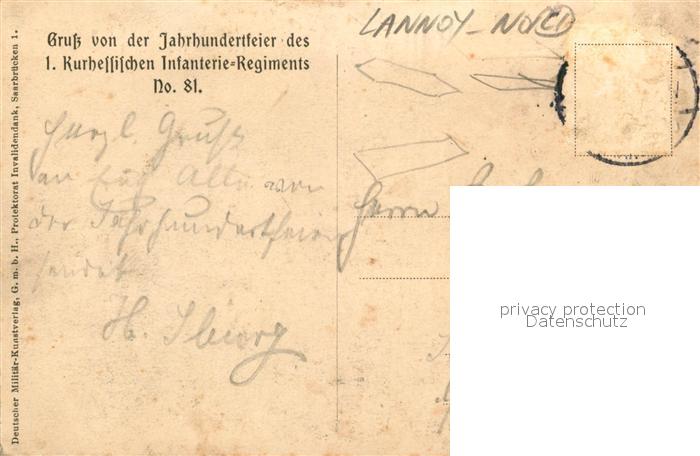 LANNOY - NO
Gruß von der Jahrhundertfeier des
1. Kurhessischen Infanterie-Regiments
No. 81.
Herzl. Gruß
an Alte von
der Jahrhundertfeier
sendet
H.
Herrn
privacy protection
Datenschutz
Deutscher Militär-Kunstverlag, G. m. b. H., Protektorat Invalidendank, Saarbrücken 1.